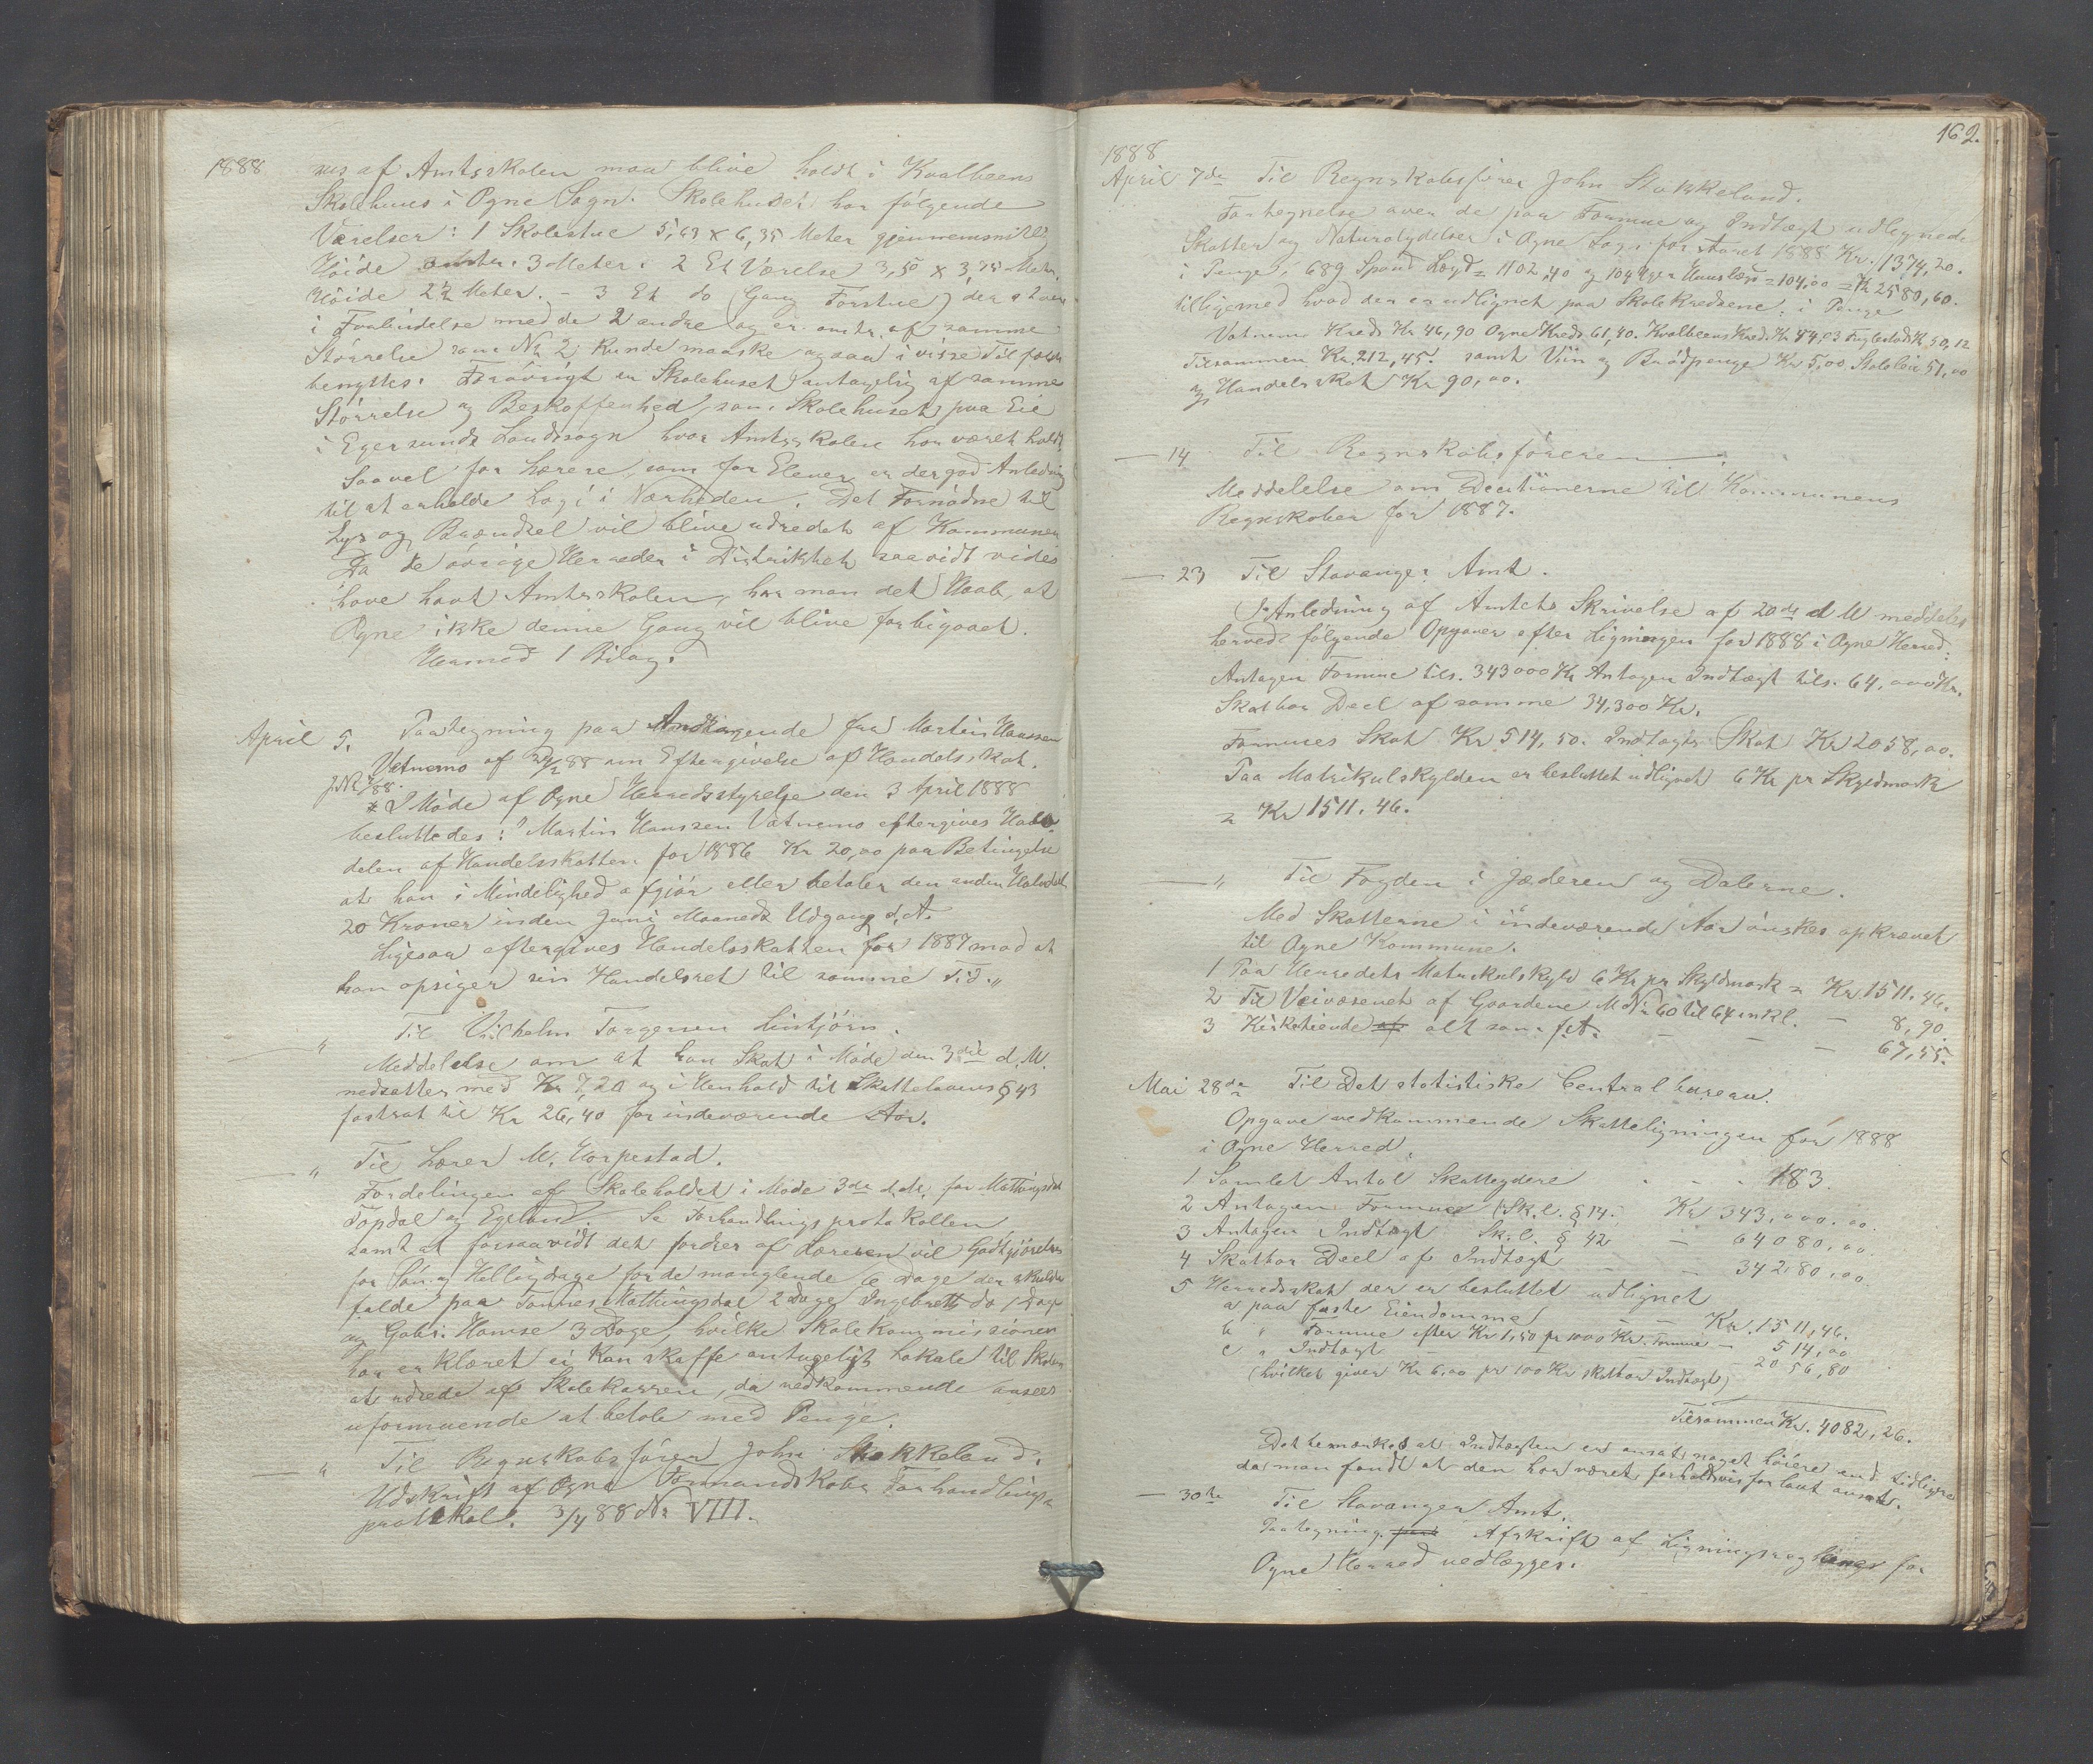 1888 sus af Amtsskolen maa blive holdt i Kvalbeens
Skolehuus i Ogne Sogn. Skolehuset har følgende
Værelser: 1 Skolestue 5,63 x 6,35 Meter gjennemsnitlig
Höide 3 Meter. 2 Et Værelse 3,50 x 3,75 Meter.
Höide 2½ Meter. - 3 Et do (Gang Forstue) der staar
i Forbindelse med de 2 andre og er omtr. af samme
Störrelse som No 2, kunde maaske ogsaa i visse Tilfælde
benyttes. Forövrigt er Skolehuset antagelig af samme
Störrelse og Beskaffenhed, som Skolehuset paa Eie
i Egersunds Landsogn hvor Amtsskolen har været holdt,
Saavel for Lærere, som for Elever er der god Anledning
til at erholde Logi i Nærheden. Det Fornödne til
Lys og Brændsel vil blive udredet af Kommunen
Da de övrige Herreder i Distriktet saavidt vides
have havt Amtsskolen, har man det Haab, at
Ogne ikke denne Gang vil blive forbigaaet.
Hermed 1 Bilag.
April 5. Paategning paa Andragende fra Martin Hanssen
Vatnemo af 88 om Eftergivelse af Handelsskat.
J.No /88.
I Möde af Ogne Herredsstyrelse den 3 April 1888
besluttedes: "Martin Hanssen Vatnemo eftergives Halv-
delen af Handelsskatten for 1886 Kr 20,00 paa Betingelse
at han i Mindelighed afgjör eller betaler den anden Halvdel
20 Kroner inden Juni Maaneds Udgang d.A.
Ligesaa eftergives Handelsskatten for 1887 mod at
han opsiger sin Handelsret til samme Tid."
— " Til Vilhelm Torgersen Lintjörn.
Meddelelse om at han Skat i Möde den 3die d.M.
nedsattes med Kr 7,20 og i Henhold til Skattelovens § 43
fastsat til Kr 26,40 for indeværende Aar.
— " Til Lærer M. Horpestad.
Fordelingen af Skoleholdet i Möde 3die d.M. for Mattingsdal
Töpdal og Egeland. Se Forhandlingsprotokollen
samt at forsaavidt det fordres af Læreren vil Godtgjörelse
for Sön og Helligdage for de manglende 6 Dage der skulde
falde paa Tönnes Mattingsdal 2 Dage Ingebrett do 1 Dag
og Gabr. Homse 3 Dage, hvilke Skolekommissionen
har erklæret ei kan skaffe antageligt Lokale til Skolen
at udrede af Skolekassen, da vedkommende ansees
uformuende at betale med Penge.
— " Til Regnskabsförer John Stokkeland.
Udskrift af Ogne Formandskabs Forhandlings
protokol. 3/4 88 No VIII.
162.
1888
April 7de Til Regnskabsförer John Stokkeland.
Fortegnelse over de paa Formue og Indtægt udlignede
Skatter og Naturalydelser i Ogne Sogn for Aaret 1888 Kr. 1374,20.
i Penge, 689 Spand Lægd = 1102,40 og 104 Uger Huuslæg = 104,00 = Kr 2580,60.
tilligemed hvad der er udlignet paa Skolekredsene: i Penge
Vatnemo Kreds Kr 46,90 Ogne Kreds 61,40. Kvalbeens Kreds Kr 54,03 Fuglestad K 50,12
Tilsammen Kr. 212,45. samt Viin og Brödpenge Kr 5,00 51,00
og Handelsskat Kr 90,00.
— 14 Til Regnskabsföreren
Meddelelse om Decisionerne til Kommunens
Regnskaber for 1887.
— 23 Til Stavanger Amt.
I Anledning af Amtets Skrivelse af 20de d M meddeles
herved fölgende Opgaver efter Ligningen for 1888 i Ogne Herred:
Antagen Formue tils. 343000 Kr Antagen Indtægt tils. 64,000 Kr.
Skatbar Deel af samme 34,300 Kr.
Formues Skat Kr 514,50. Indtægts Skat Kr 2058,00.
Paa Matrikulskylden er besluttet udlignet 6 Kr pr Skyldmark
= Kr 1511.46.
— " Til Fogden i Jæderen og Dalerne.
Med Skatterne i indeværende Aar önskes opkrævet
til Ogne Kommune.
1 Paa Herredets Matrikulskyld 6 Kr pr Skyldmark = Kr. 1511.46.
2 Til Veivæsenet af Gaardene MNo 60 til 64 inkl. — 8,90.
3 Kirketiende alt som f.A. — — — 67,55.
Mai 28de Til Det statistiske Centralbureau.
Opgave vedkommende Skatteligningen for 1888
i Ogne Herred.
1 Samlet Antal Skatteydere - - - 183.
2 Antagen Formue (Sk.l. § 14. Kr 343,000.00.
3 Antagen Indtægt Sk.l. § 42 — 64080.00.
4 Skatbar Deel af Indtægt — — 34280.00.
5 Herredsskat der er besluttet udlignet
a paa faste Eiendomme — — Kr. 1511,46.
b " Formue efter Kr 1,50 pr 1000 Kr. Formue — 514,00
c " Indtægt — — — 2056,80
(hvilket giver Kr 6,00 pr 100 Kr skatbar Indtægt)
Tilsammen Kr. 4082,26.
Det bemærkes at Indtægten er ansat noget höiere end tidligere
da man fandt at den har været forholdsvis for lavt ansat.
— 30te Til Stavanger Amt.
Paategning. Afskrift af Ligningsreglerne for
Ogne Herred vedlægges.